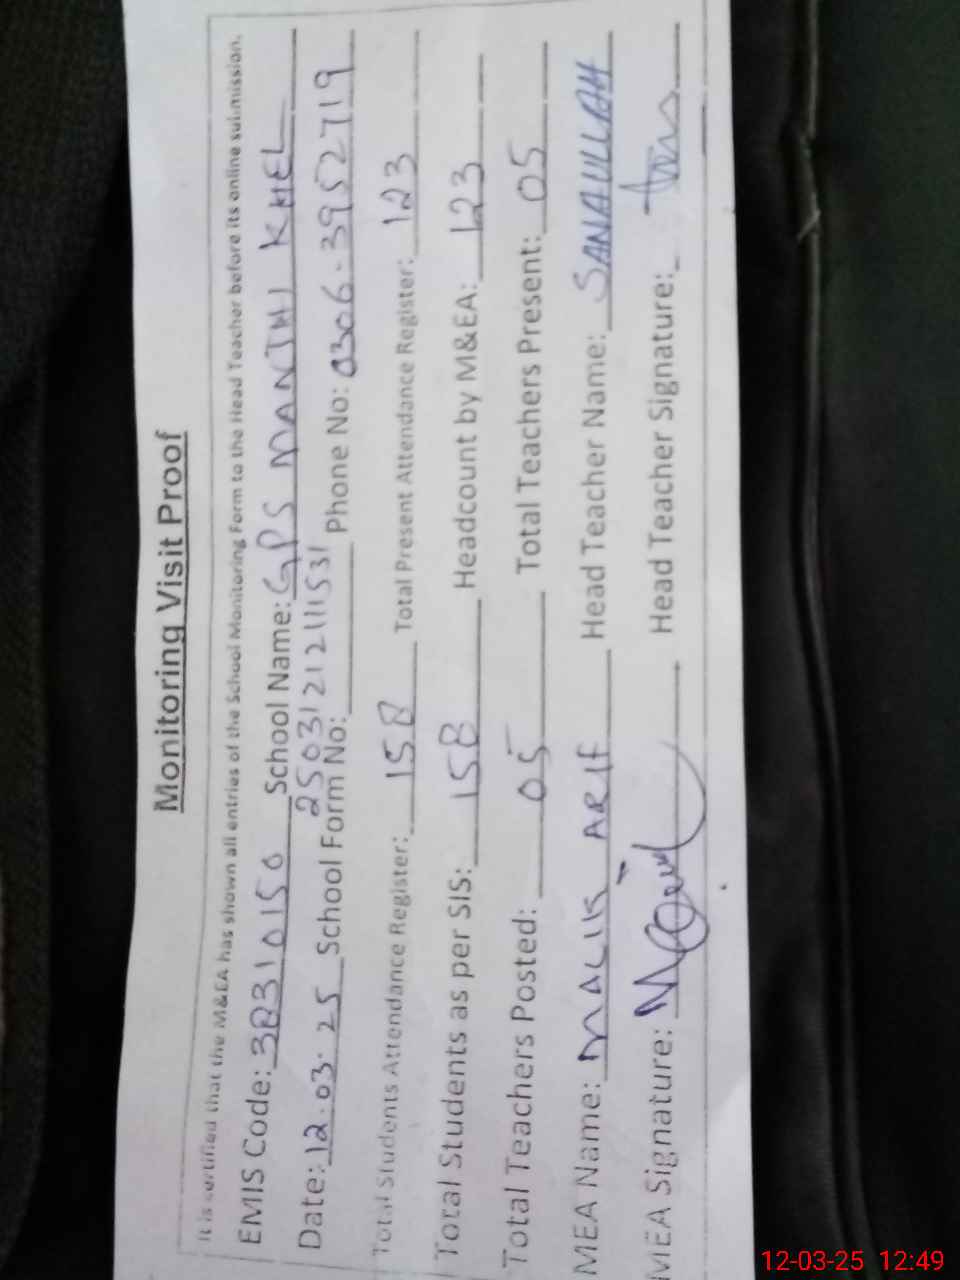 Monitoring Visit Proof
It is certified that the M&EA has shown all entries of the School Monitoring Form to the Head Teacher before its online submission.
EMIS Code: 38310150 School Name: GPS MANJHI KHEL
Date: 12.03.25 School Form No: 25031212111531 Phone No: 0306-3952719
Total Students Attendance Register: 158 Total Present Attendance Register: 123
Total Students as per SIS: 158 Headcount by M&EA: 123
Total Teachers Posted: 05 Total Teachers Present: 05
MEA Name: MALIK ARIF Head Teacher Name: SANAULLAH
MEA Signature: Head Teacher Signature:
12-03-25 12:49